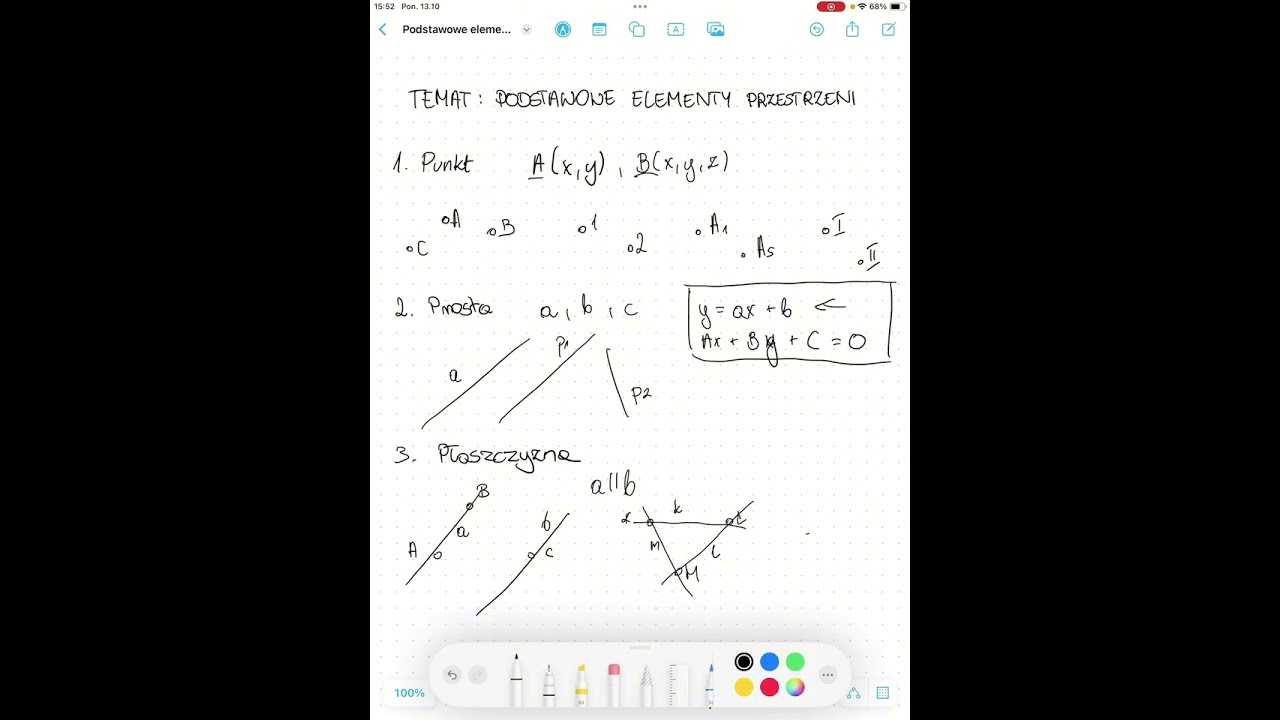 15:52 Pon. 13.10 68%
Podstawowe eleme...
TEMAT: PODSTAWOWE ELEMENTY PRZESTRZENI
1. Punkt A(x,y), B(x,y,z)
A B 1 A1 I
C 2 A5 II
2. Prosta a, b, c
y = ax + b ←
Ax + By + C = 0
a p1 p2
3. Płaszczyzna
a || b
B k
A a b C M l
M
100%